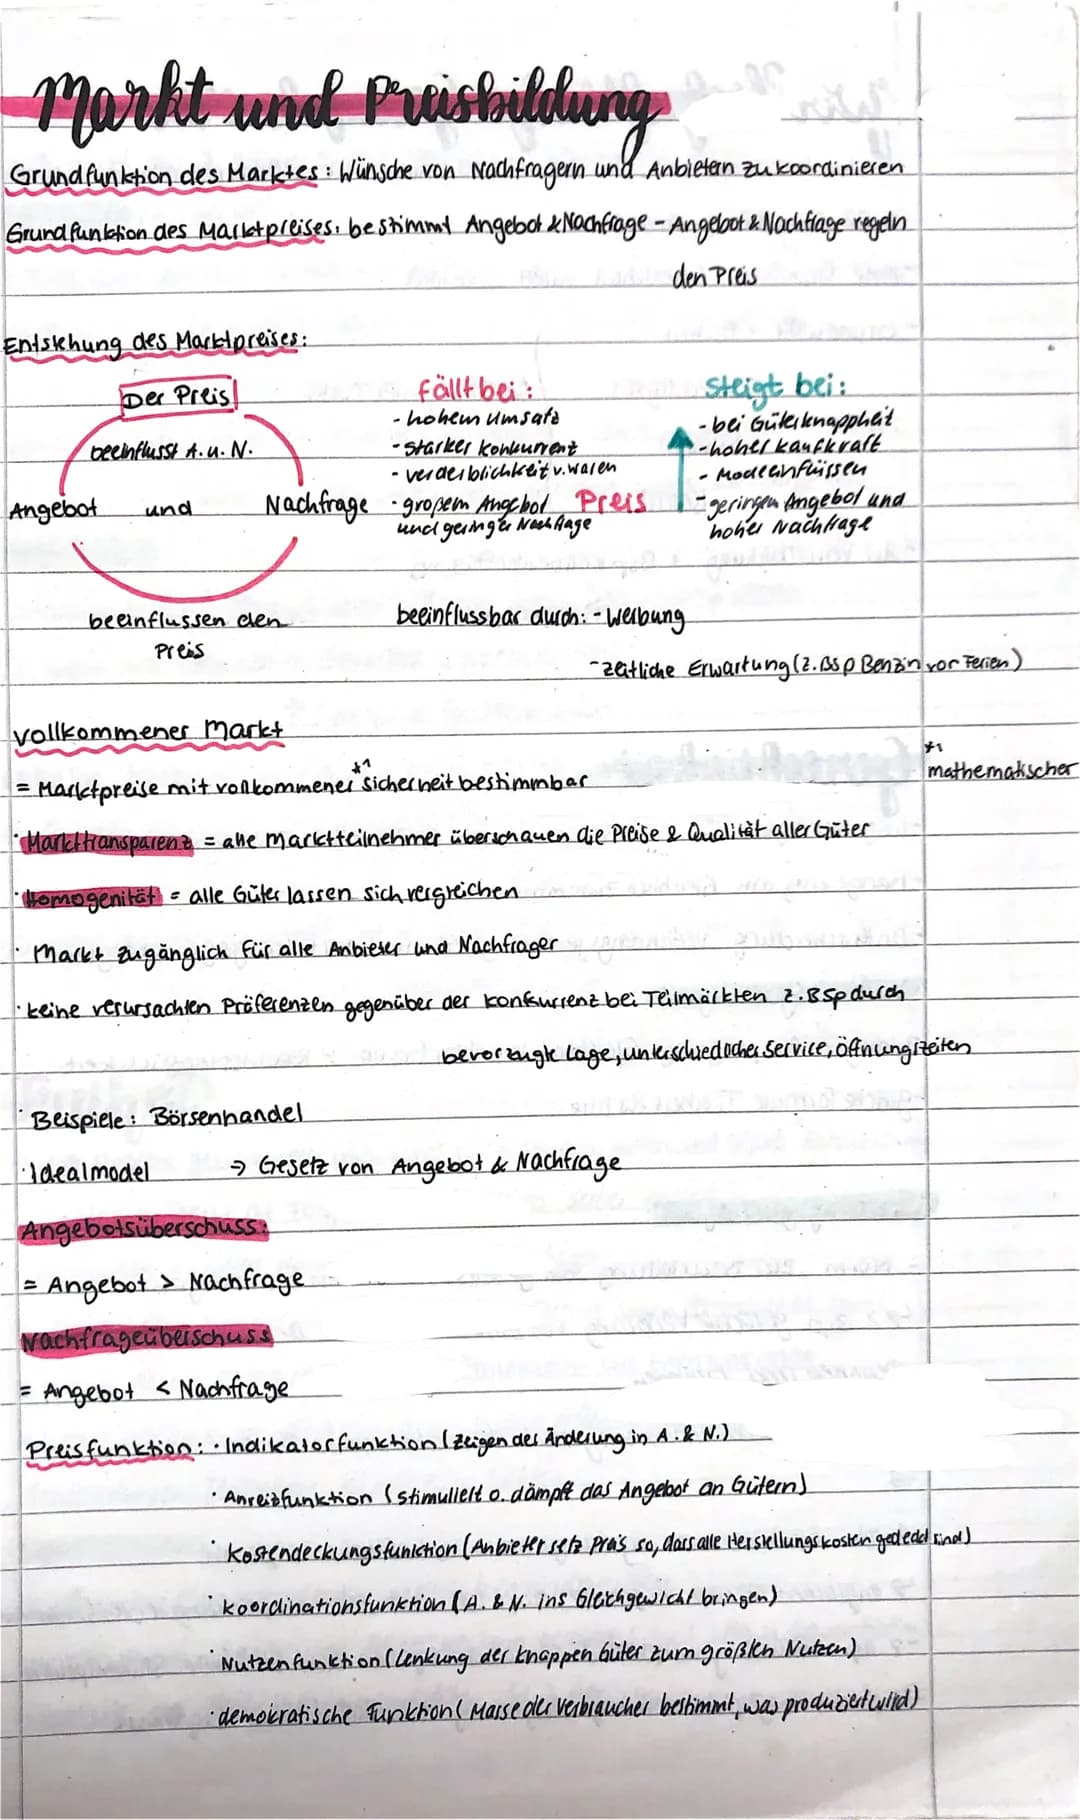 Markt und Preisbildung
Grundfunktion des Marktes: Wünsche von Nachfragern und Anbietern zu koordinieren
Grundfunktion des Marktpreises: bestimmt Angebot & Nachfrage - Angebot & Nachfrage regeln
den Preis
Entstehung des Marktpreises:
Der Preis
beeinflusst A. u. N.
Angebot und Nachfrage
beeinflussen den
Preis
fällt bei:
- hohem Umsatz
- starker Konkurrent
- verderblichkeit v. waren
- großem Angebot
und geringer Nachfrage
Preis
steigt bei:
- bei Güterknappheit
- hoher kaufkraft
- Modeeinflüssen
- geringem Angebot und
hoher Nachfrage
beeinflussbar durch: - Werbung
- zeitliche Erwartung (z.Bsp Benzin vor Ferien)
vollkommener Markt
= Marktpreise mit vollkommener *1 sicherheit bestimmbar
*1
mathematischer
· Markttransparenz = alle Marktteilnehmer überschauen die Preise & Qualität aller Güter
· Homogenität = alle Güter lassen sich vergleichen
· Markt zugänglich für alle Anbieter und Nachfrager
· keine verursachten Präferenzen gegenüber der konkurrenz bei Teilmärkten z.Bsp durch
bevorzugte Lage, unterschiedlicher Service, öffnungszeiten
· Beispiele: Börsenhandel
· Idealmodel → Gesetz von Angebot & Nachfrage
Angebotsüberschuss:
= Angebot > Nachfrage
Nachfrageüberschuss
= Angebot < Nachfrage
Preisfunktion: · Indikatorfunktion (zeigen der Änderung in A. & N.)
· Anreizfunktion (stimuliert o. dämpft das Angebot an Gütern)
· Kostendeckungsfunktion (Anbieter setz Preis so, dass alle Herstellungskosten gedeckt sind)
· koordinationsfunktion (A. & N. ins Gleichgewicht bringen)
· Nutzenfunktion (Lenkung der knappen Güter zum größten Nutzen)
· demokratische Funktion (Masse der Verbraucher bestimmt, was produziert wird)